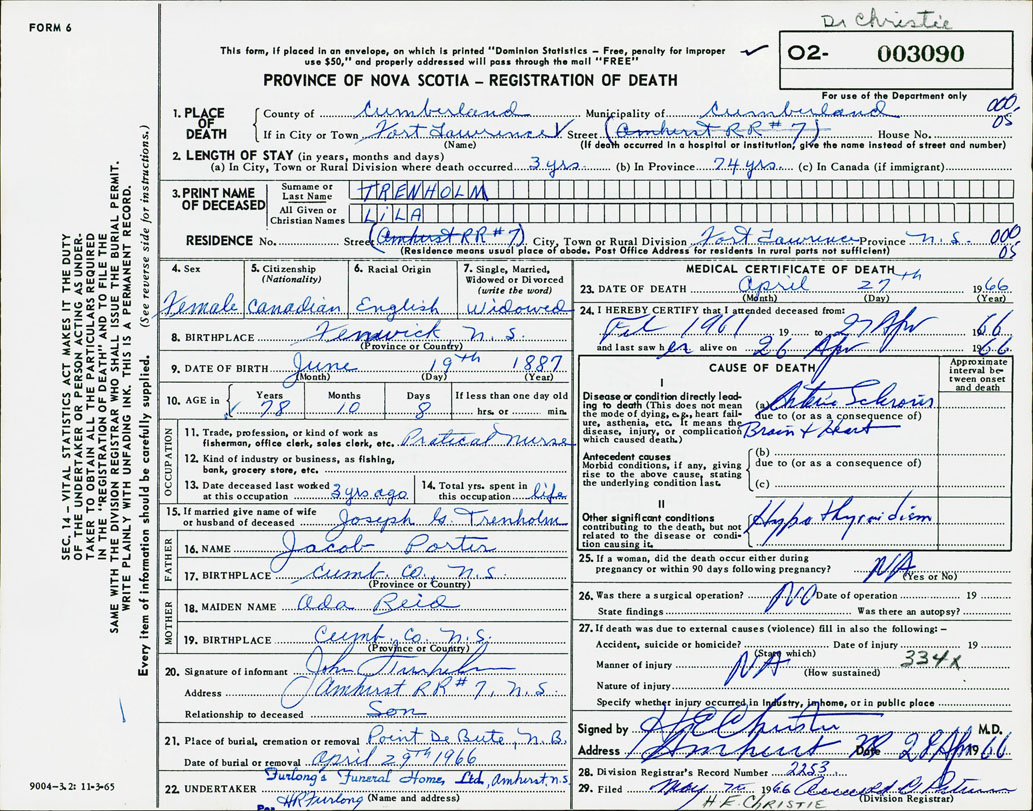 Dr Christie
FORM 6
This form, if placed in an envelope, on which is printed "Dominion Statistics – Free, penalty for improper
use $50," and properly addressed will pass through the mail "FREE"
PROVINCE OF NOVA SCOTIA – REGISTRATION OF DEATH
02- 003090
For use of the Department only
1. PLACE OF DEATH County of Cumberland Municipality of Cumberland 000
If in City or Town Fort Lawrence Street (Amhurst RR #7) House No. 05
(Name) (If death occurred in a hospital or institution, give the name instead of street and number)
2. LENGTH OF STAY (in years, months and days)
(a) In City, Town or Rural Division where death occurred 3 yrs. (b) In Province 74 yrs. (c) In Canada (if immigrant)
3. PRINT NAME OF DECEASED Surname or Last Name TRENHOLM
All Given or Christian Names LILA
RESIDENCE No. Street (Amhurst RR #7) City, Town or Rural Division Fort Lawrence Province N.S. 000
(Residence means usual place of abode. Post Office Address for residents in rural parts not sufficient) 05
4. Sex Female
5. Citizenship (Nationality) Canadian
6. Racial Origin English
7. Single, Married, Widowed or Divorced (write the word) Widowed
8. BIRTHPLACE Fenwick N.S.
(Province or Country)
9. DATE OF BIRTH June 19th 1887
(Month) (Day) (Year)
10. AGE in Years 78 Months 10 Days 8 If less than one day old hrs. or min.
OCCUPATION
11. Trade, profession, or kind of work as fisherman, office clerk, sales clerk, etc. Pratical Nurse
12. Kind of industry or business, as fishing, bank, grocery store, etc.
13. Date deceased last worked at this occupation 3 yrs ago
14. Total yrs. spent in this occupation life
15. If married give name of wife or husband of deceased Joseph G. Trenholm
FATHER
16. NAME Jacob Porter
17. BIRTHPLACE Cumb. Co., N.S.
(Province or Country)
MOTHER
18. MAIDEN NAME Ada Reid
19. BIRTHPLACE Cumb. Co. N.S.
(Province or Country)
20. Signature of informant John Trenholm
Address Amhurst RR #7, N.S.
Relationship to deceased Son
21. Place of burial, cremation or removal Point De Bute, N.B.
Date of burial or removal April 29th 1966
22. UNDERTAKER Furlong's Funeral Home, Ltd, Amherst, n.s.
Per HR Furlong (Name and address)
MEDICAL CERTIFICATE OF DEATH
23. DATE OF DEATH April 27th 1966
(Month) (Day) (Year)
24. I HEREBY CERTIFY that I attended deceased from:
Feb 1961 19 to 27 Apr 1966
and last saw her alive on 26 Apr 1966
CAUSE OF DEATH
Approximate interval between onset and death
I
Disease or condition directly leading to death (This does not mean mode of dying, e.g., heart failure, asthenia, etc. It means the disease, injury, or complication which caused death.)
(a) Arterio Sclerosis
due to (or as a consequence of)
Brain & Heart
Antecedent causes
Morbid conditions, if any, giving rise to the above cause, stating the underlying condition last.
(b)
due to (or as a consequence of)
(c)
II
Other significant conditions contributing to the death, but not related to the disease or condition causing it.
Hypothyroidism
25. If a woman, did the death occur either during pregnancy or within 90 days following pregnancy? NA
(Yes or No)
26. Was there a surgical operation? NO Date of operation 19
State findings Was there an autopsy?
27. If death was due to external causes (violence) fill in also the following: –
Accident, suicide or homicide? Date of injury 19
(State which) 334x
Manner of injury NA (How sustained)
Nature of injury
Specify whether injury occurred in industry, in home, or in public place
Signed by H E Christie M.D.
Address Amherst NS Date 28 Apr 1966
28. Division Registrar's Record Number 2253
29. Filed May 2 1966
(Division Registrar)
H. E. CHRISTIE
SEC. 14 – VITAL STATISTICS ACT MAKES IT THE DUTY
OF THE UNDERTAKER OR PERSON ACTING AS UNDER-
TAKER TO OBTAIN ALL THE PARTICULARS REQUIRED
IN THE "REGISTRATION OF DEATH" AND TO FILE THE
SAME WITH THE DIVISION REGISTRAR WHO SHALL ISSUE THE BURIAL PERMIT.
WRITE PLAINLY WITH UNFADING INK. THIS IS A PERMANENT RECORD.
Every item of information should be carefully supplied. (See reverse side for instructions.)
9004-3.2: 11-3-65